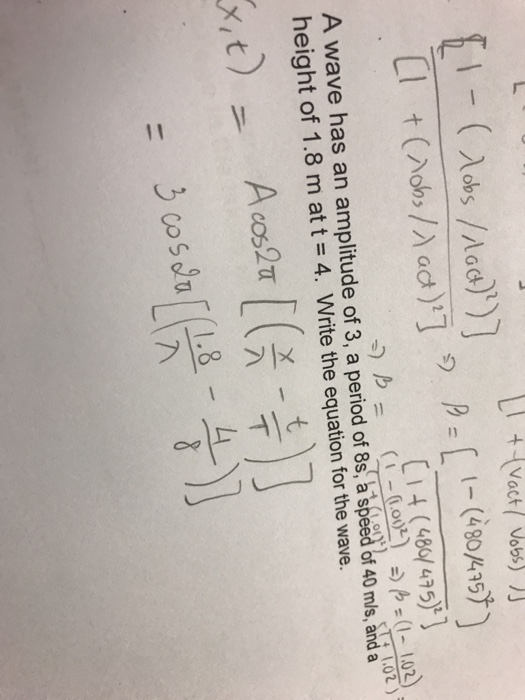 [1 + (Vact/Vobs)]
[1 - (λobs/λact)²)] ⇒ β = [1-(480/475)²]
[1 + (λobs/λact)²] [1+(480/475)²]
⇒ β = (1-(1.01)²) ⇒ β = (1-1.02)
(1+(1.01)²) (1+1.02)
A wave has an amplitude of 3, a period of 8s, a speed of 40 m/s, and a
height of 1.8 m at t = 4. Write the equation for the wave.
(x,t) = A cos2π [(x/λ - t/T)]
= 3 cos2π [(1.8/λ - 4/8)]